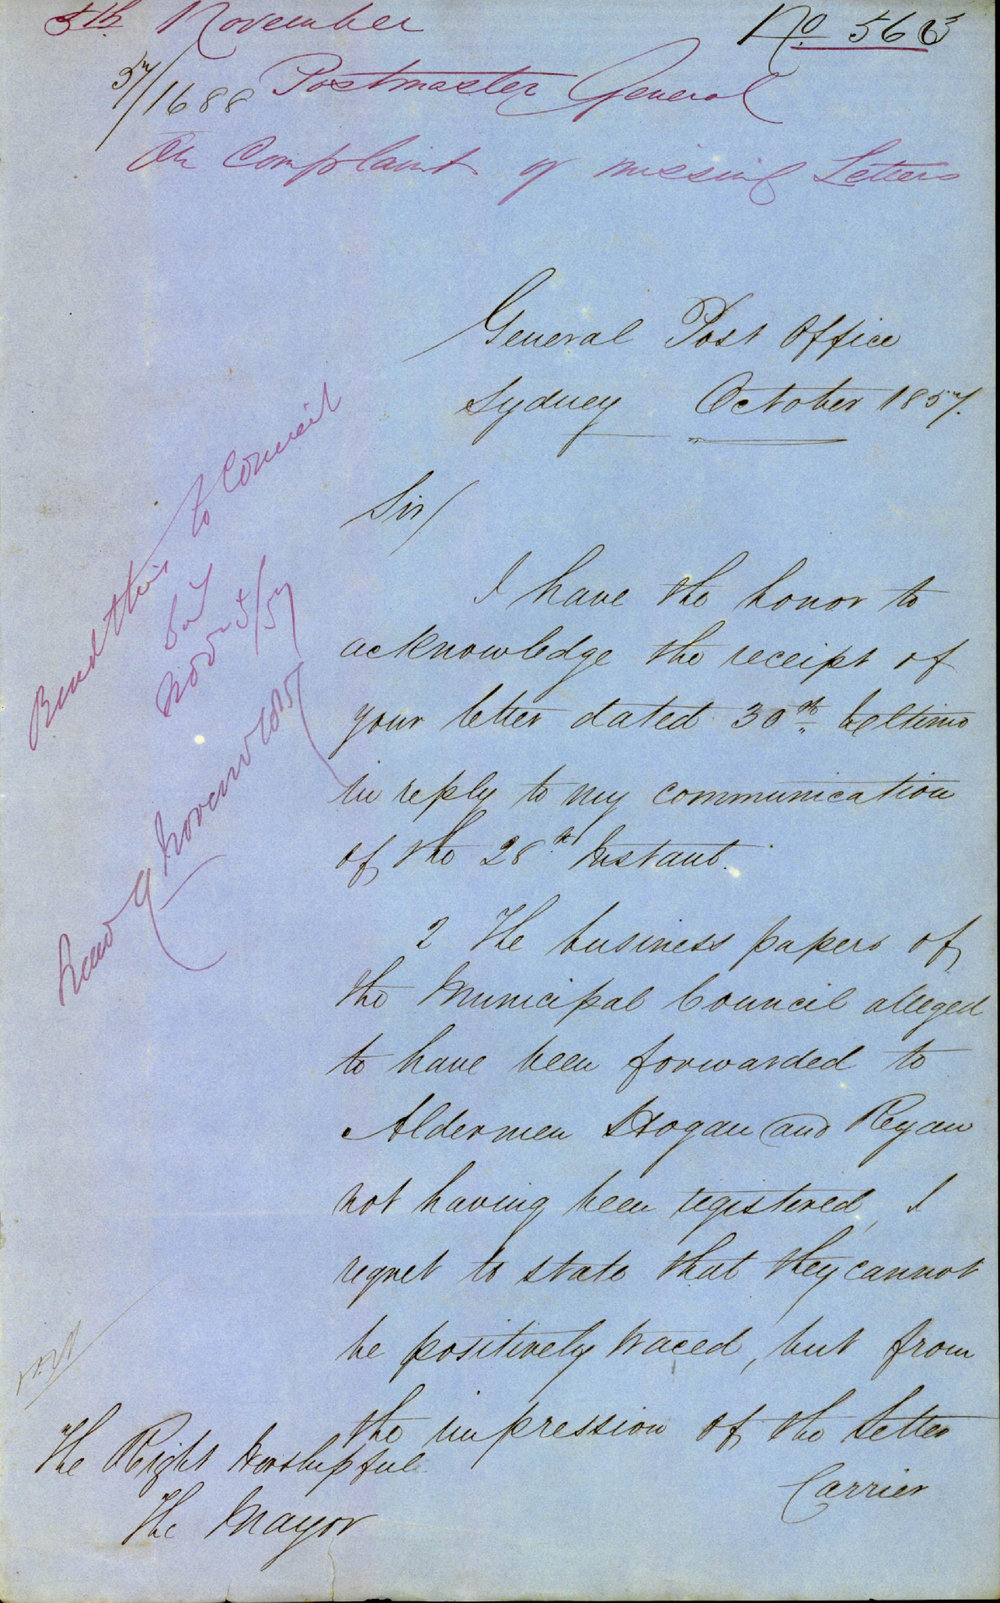 5th November
No 563
57/1688 Postmaster General
On Complaint of missing Letters
General Post Office
Sydney October 1857.
Sir/
I have the honor to
acknowledge the receipt of
your letter dated 30th Ultimo
in reply to my communication
of the 28th Instant.
2 The business papers of
the Municipal Council alleged
to have been forwarded to
Aldermen Hogan and Ryan
not having been registered, I
regret to state that they cannot
be positively traced, but from
the impression of the Letter
Carrier
The Right Worshipful
The Mayor
Read this to Council
Nov 5/57
November 1857